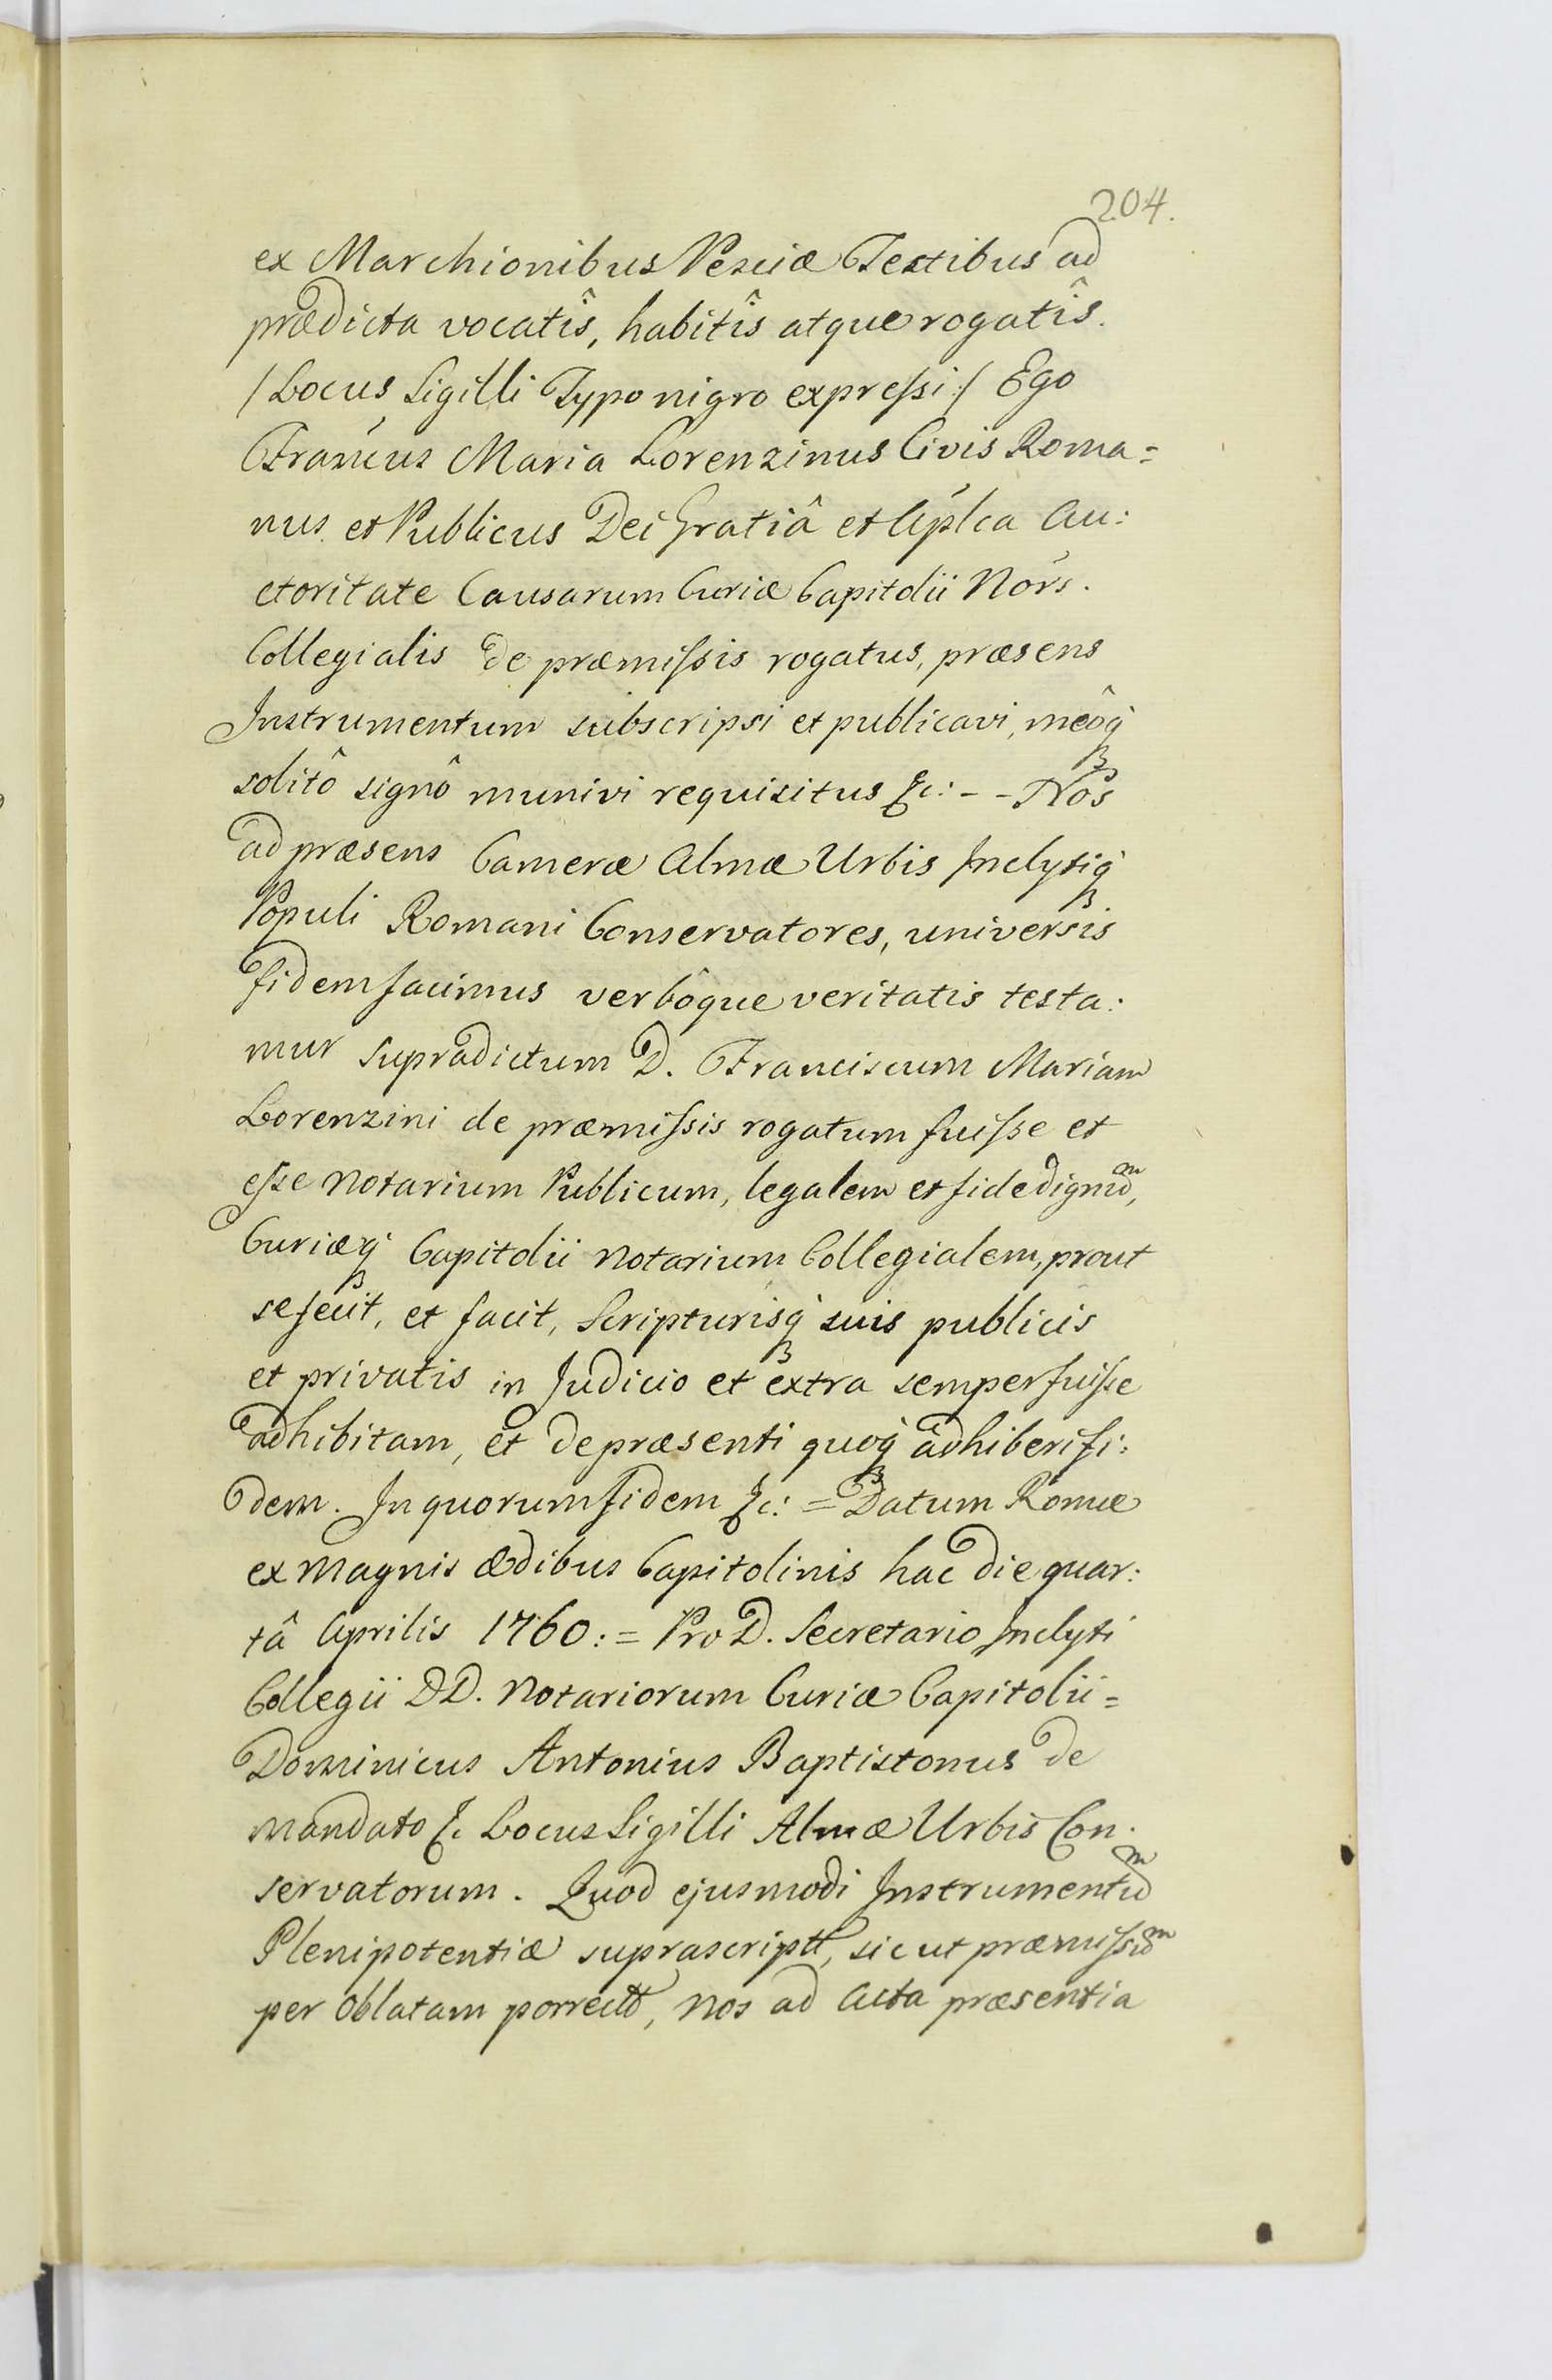 204.
ex Marchionibus Pesciæ Testibus ad
prædicta vocatîs, habitîs atque rogatîs.
/Locus Sigilli Typo nigro expreſsi:/ Ego
Francus Maria Lorenzinus Civis Roma=
nus et Publicus Dei Gratiâ et Aplca Au:
ctoritate Causarum Curiæ Capitolii Nors.
Collegialis de præmiſsis rogatus, præsens
Instrumentum subscripsi et publicavi, meôq
solitô signô munivi requisitus &c: - - Nos
ad præsens Cameræ Almæ Urbis Inclytiq
Populi Romani Conservatores, universis
fidem facimus verbôque veritatis testa:
mur supradictum D. Franciscum Mariam
Lorenzini de præmiſsis rogatum fuiſse et
eſse Notarium Publicum, legalem et fide dignum,
Curiæq Capitolii Notarium Collegialem, prout
se fecit, et facit, Scripturisq suis publicis
et privatis in Judicio et extra semper fuiſse
adhibitam, et de præsenti quoq adhiberi fi:
dem. In quorum fidem &c: = Datum Romæ
ex Magnis Ædibus Capitolinis hac die quar:
tâ Aprilis 1760: = Pro D. Secretario Inclyti
Collegii DD. Notariorum Curiæ Capitolii =
Dominicus Antonius Baptistonus de
mandato &c Locus Sigilli Almæ Urbis Con:
servatorum. Quod ejusmodi Instrumentum
Plenipotentiæ suprascriptt, sicut præmiſsum
per Oblatam porrectt, Nos ad Acta præsentia